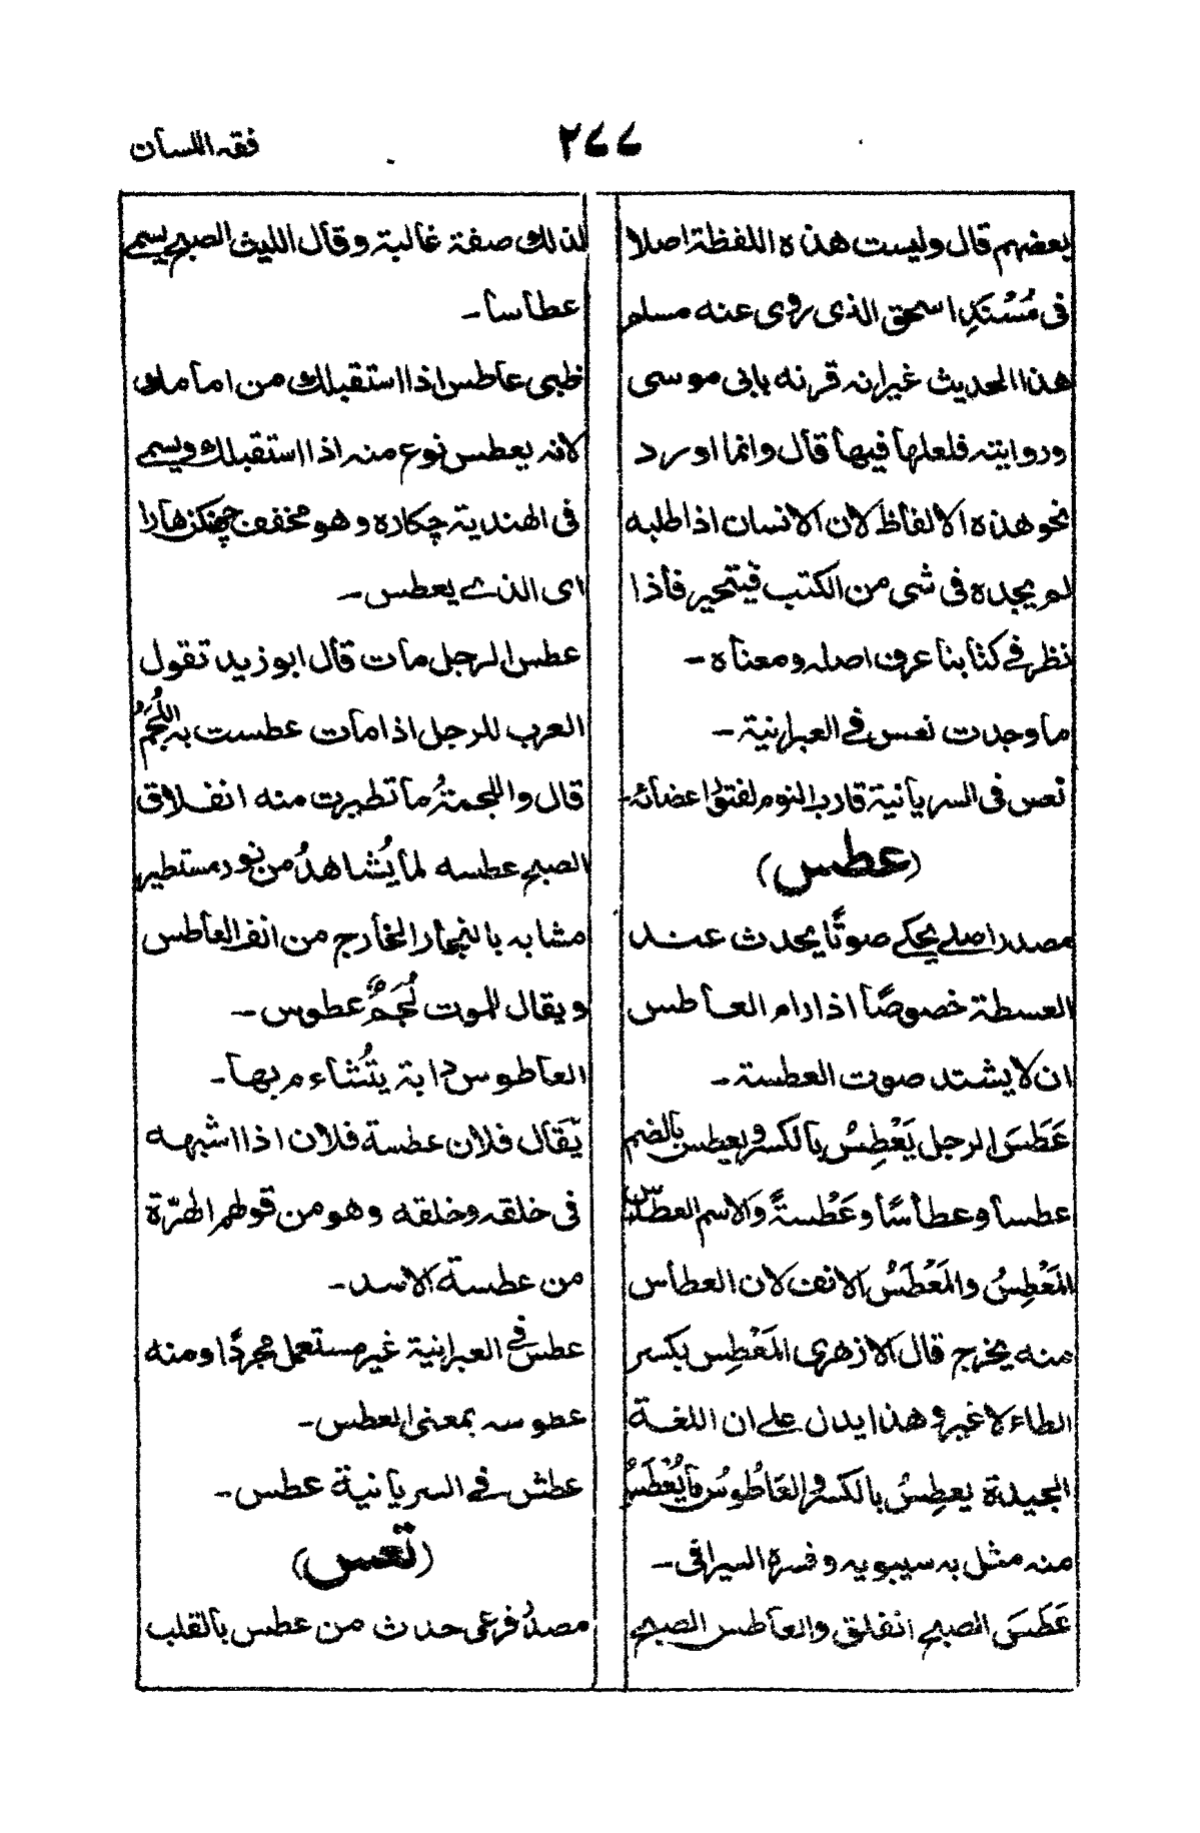 فقه اللسان
٢٧٧
بعضهم قال وليست هذه اللفظة اصلا
فى مُسْنَدِ اسحق الذى روى عنه مسلم
هذا الحديث غير انه قرنه بابى موسى
وروايته فلعلها فيها قال وانما اورد
نحو هذه الالفاظ لان الانسان اذا طلبه
لم يجده فى شى من الكتب فيتحير فاذا
نظر فى كتابنا عرف اصله ومعناه -
ما وجدت نعس فى العبرانية -
نعس فى السريانية قارب النوم لفتور اعضائه -
(عطس)
مصدر اصلى يحكى صوتًا يحدث عند
العسطة خصوصًا اذا رام العاطس
ان لا يشتد صوت العطسة -
عَطَسَ الرجل يَعْطِسُ بالكسر ويعطس بالضم
عطسا وعطاسًا وعَطْسةً والاسم العطاس
المَعْطِسُ والمَعْطَسُ الانف لان العطاس
منه يخرج قال الازهرى المَعْطِس بكسر
الطاء لا غير وهذا يدل على ان اللغة
الجيدة يعطِسُ بالكسر والعَاطُوسُ مايُعْطَسُ
منه مثل به سيبويه وفسره السيرافى -
عَطَسَ الصبح انفلق والعاطس الصبح
لذلك صفة غالبة وقال الليث الصبح يسمى
عطاسا -
ظبى عاطس اذا استقبلك من امامك
لانه يعطس نوع منه اذا استقبلك ويسمى
فى الهندية چكاره وهو مخفف چهنكزهارا
اى الذى يعطس -
عطس الرجل مات قال ابو زيد تقول
العرب للرجل اذا مات عطست به اللُّجَمُ
قال واللجمةُ ما تطيرت منه انفلاق
الصبح عطسه لما يُشاهدُ من نور مستطير
مشابه بالنجار الخارج من انف العاطس
ويقال للموت لُجَمٌ عطوس -
العاطوس دابة يتُشاءم بها -
يُقال فلان عطسة فلان اذا اشبهه
فى خلقه وخلقه وهو من قولهم الهرّة
من عطسة الاسد -
عطس فى العبرانية غير مستعمل مجردًا ومنه
عطوسه بمعنى العطس -
عطش فى السريانية عطس -
(تعس)
مصدرُ فرعى حدث من عطس بالقلب